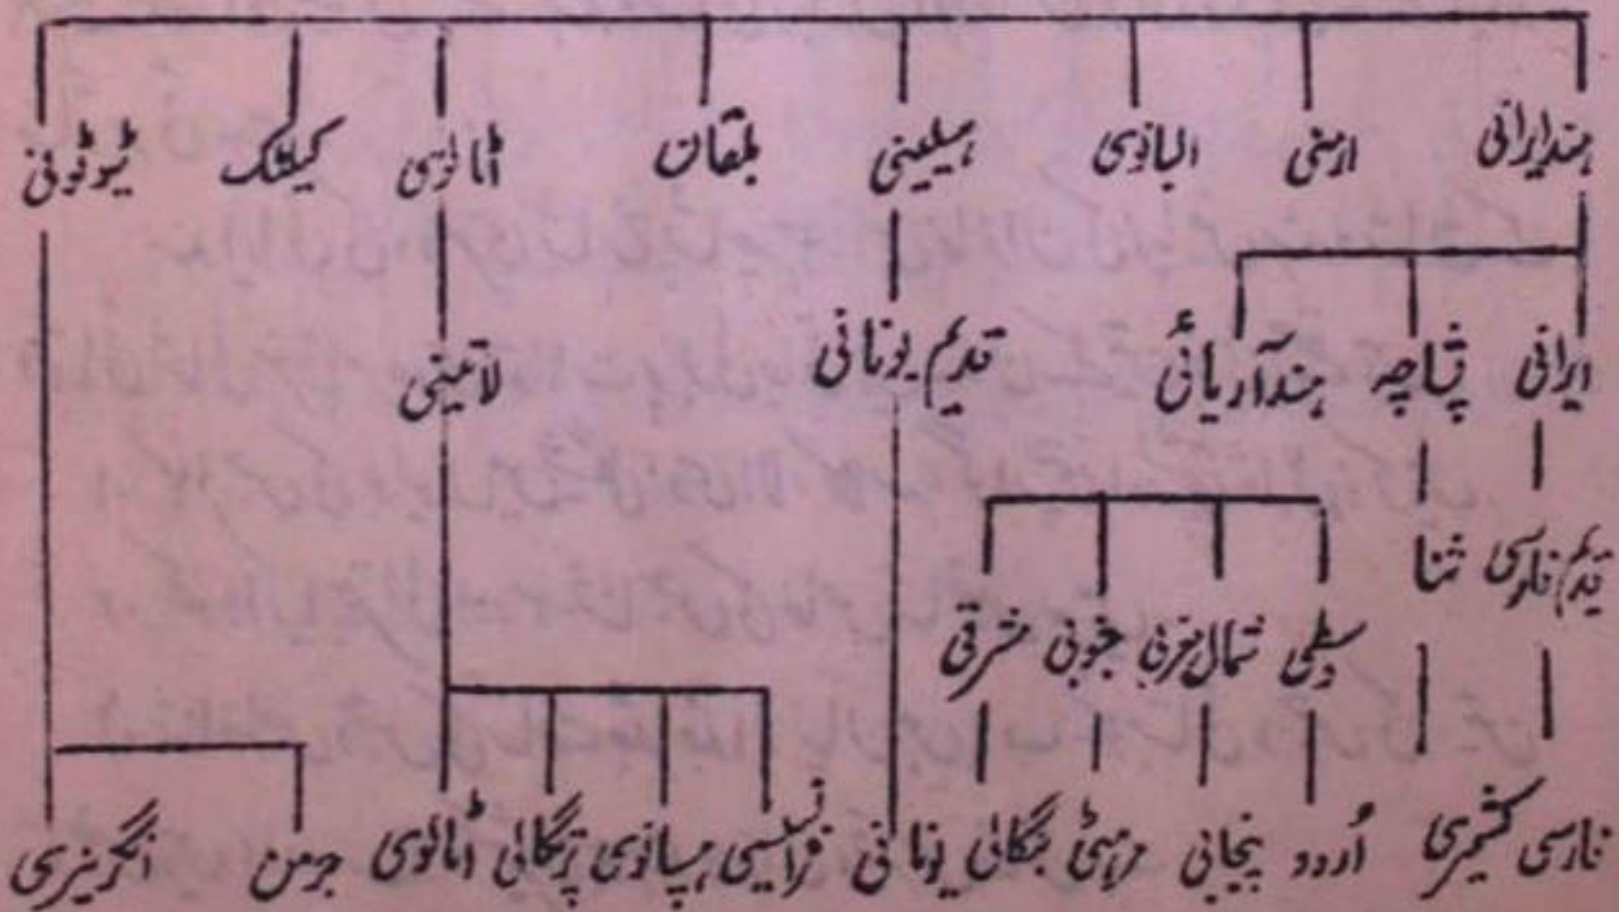 ہندایرانی ارمنی البانوی ہیلینی بلقان اٹالوی کیلٹک ٹیوٹونی
ایرانی پشاچہ ہندآریائی قدیم یونانی لاتینی
قدیم فارسی شنا
وسطی شمال مغربی جنوبی مشرقی
فارسی کشمیری اُردو پنجابی مرہٹی بنگالی یونانی فرانسیسی ہسپانوی پرتگالی اٹالوی جرمن انگریزی